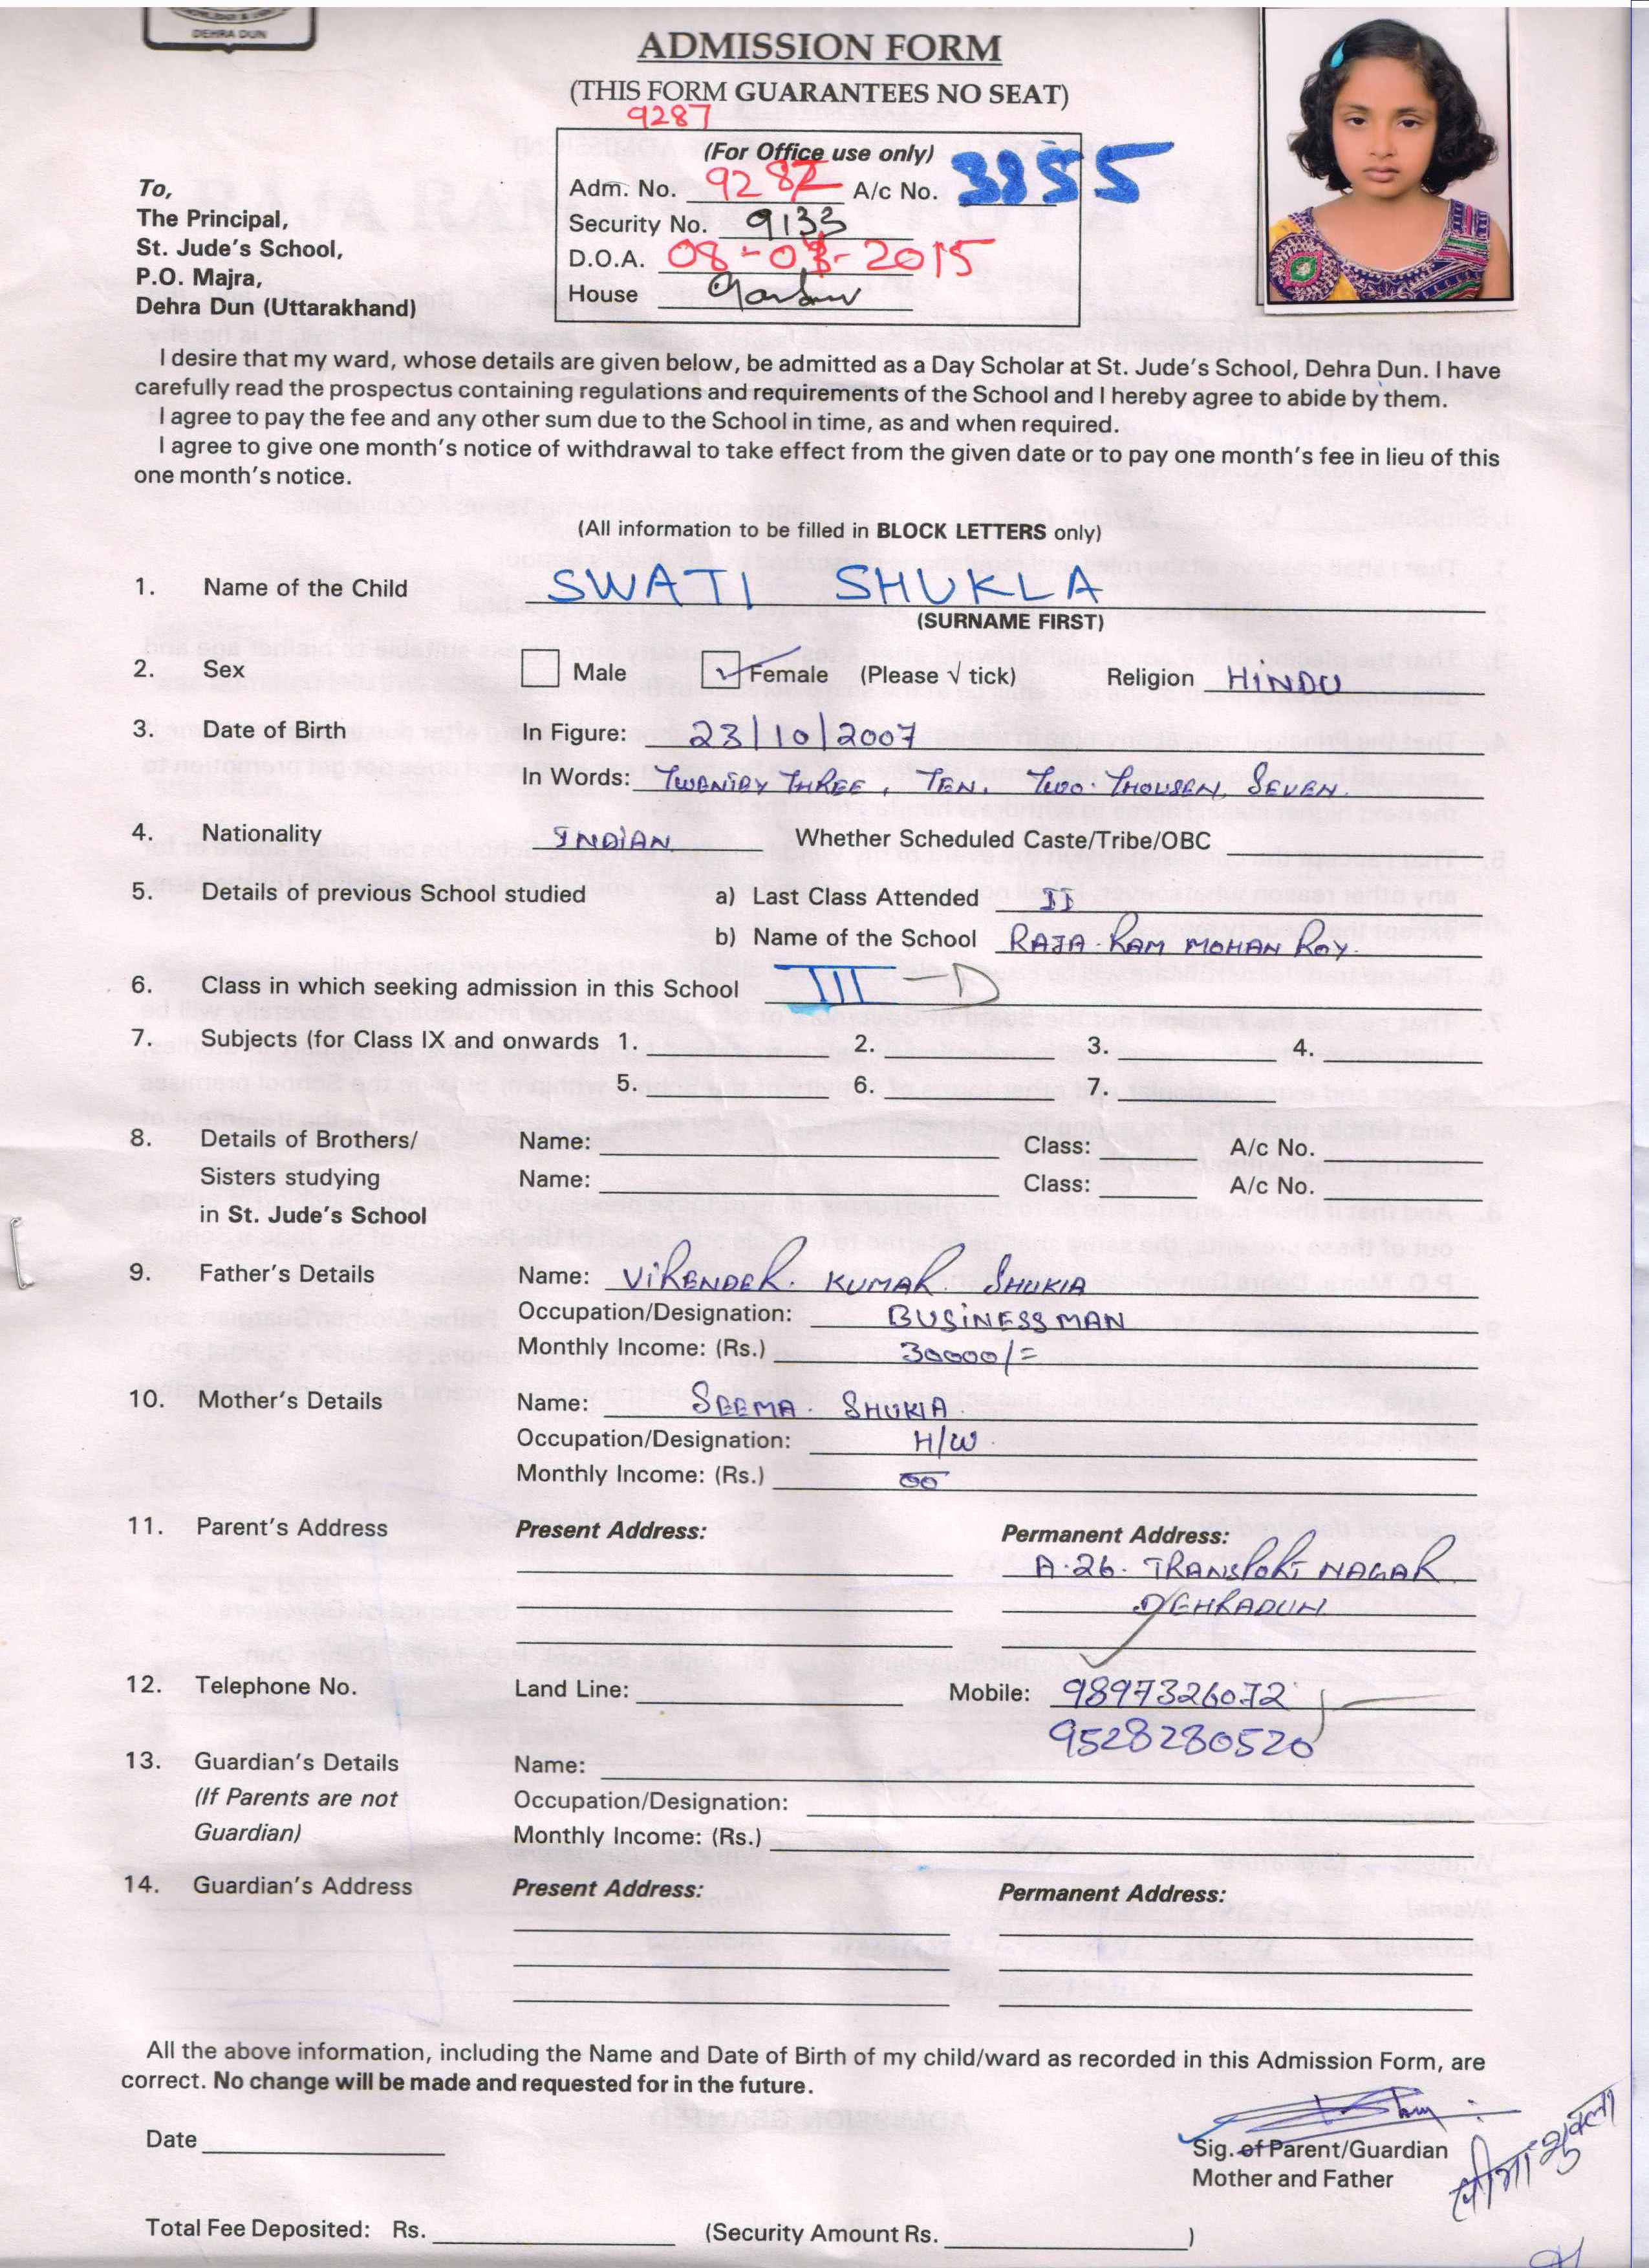 DEHRA DUN
ADMISSION FORM
(THIS FORM GUARANTEES NO SEAT)
9287
(For Office use only)
Adm. No. 9287 A/c No. 3855
Security No. 9133
D.O.A. 08-03-2015
House
To,
The Principal,
St. Jude's School,
P.O. Majra,
Dehra Dun (Uttarakhand)
I desire that my ward, whose details are given below, be admitted as a Day Scholar at St. Jude's School, Dehra Dun. I have
carefully read the prospectus containing regulations and requirements of the School and I hereby agree to abide by them.
I agree to pay the fee and any other sum due to the School in time, as and when required.
I agree to give one month's notice of withdrawal to take effect from the given date or to pay one month's fee in lieu of this
one month's notice.
(All information to be filled in BLOCK LETTERS only)
1. Name of the Child SWATI SHUKLA
(SURNAME FIRST)
2. Sex Male Female (Please √ tick) Religion HINDU
3. Date of Birth In Figure: 23/10/2007
In Words: TWENTEY THREE, TEN. TWO. THOUSEN, SEVEN.
4. Nationality INDIAN Whether Scheduled Caste/Tribe/OBC
5. Details of previous School studied a) Last Class Attended II
b) Name of the School RAJA. RAM MOHAN ROY.
6. Class in which seeking admission in this School III - D
7. Subjects (for Class IX and onwards 1. 2. 3. 4.
5. 6. 7.
8. Details of Brothers/ Name: Class: A/c No.
Sisters studying Name: Class: A/c No.
in St. Jude's School
9. Father's Details Name: VIRENDER. KUMAR. SHUKLA
Occupation/Designation: BUSINESSMAN
Monthly Income: (Rs.) 30000/=
10. Mother's Details Name: SEEMA. SHUKLA.
Occupation/Designation: H/W.
Monthly Income: (Rs.) 00
11. Parent's Address Present Address: Permanent Address:
A-26. TRANSPORT NAGAR
DEHRADUN
12. Telephone No. Land Line: Mobile: 9897326072
9528280520
13. Guardian's Details Name:
(If Parents are not Occupation/Designation:
Guardian) Monthly Income: (Rs.)
14. Guardian's Address Present Address: Permanent Address:
All the above information, including the Name and Date of Birth of my child/ward as recorded in this Admission Form, are
correct. No change will be made and requested for in the future.
Date
Sig. of Parent/Guardian
Mother and Father
सीमा शुक्ला
Total Fee Deposited: Rs. (Security Amount Rs. )